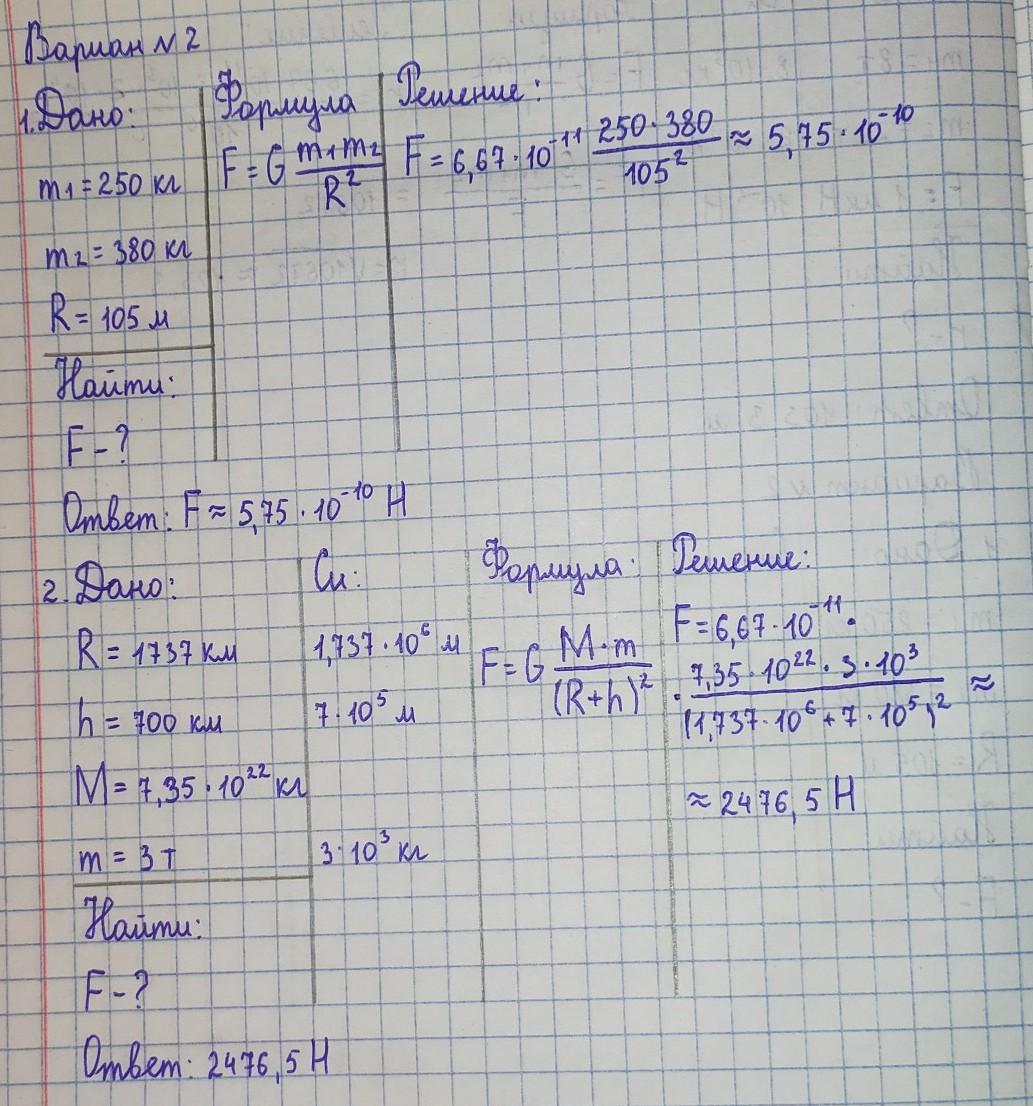 Вариан №2
1. Дано:
m₁ = 250 кг
m₂ = 380 кг
R = 105 м
Найти:
F - ?
Формула
F = G m₁m₂ / R²
Решение:
F = 6,67 · 10⁻¹¹ 250 · 380 / 105² ≈ 5,75 · 10⁻¹⁰
Ответ: F ≈ 5,75 · 10⁻¹⁰ Н
2. Дано:
R = 1737 км
h = 700 км
M = 7,35 · 10²² кг
m = 3 т
Найти:
F - ?
Си:
1,737 · 10⁶ м
7 · 10⁵ м
3 · 10³ кг
Формула:
F = G M · m / (R + h)²
Решение:
F = 6,67 · 10⁻¹¹ ·
· 7,35 · 10²² · 3 · 10³ / (1,737 · 10⁶ + 7 · 10⁵)² ≈
≈ 2476,5 Н
Ответ: 2476,5 Н